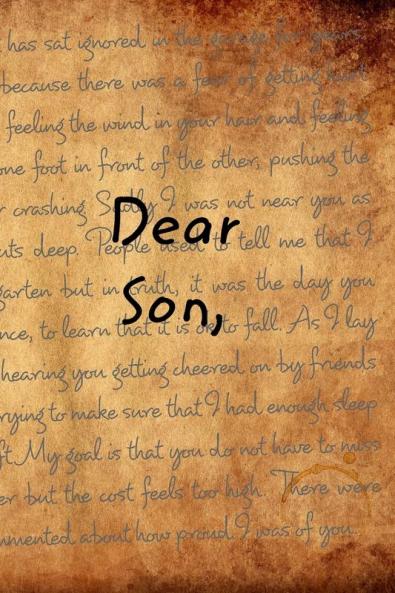 has sat ignored in the garage for years.
because there was a fear of getting hurt
feeling the wind in your hair and feeling
one foot in front of the other, pushing the
crashing. Sadly I was not near you as
uts deep. People used to tell me that I
Dear
garten but in truth, it was the day you
Son,
nce, to learn that it is ok to fall. As I lay
hearing you getting cheered on by friends
rying to make sure that I had enough sleep
ft. My goal is that you do not have to miss
er but the cost feels too high. There were
mmented about how proud I was of you.